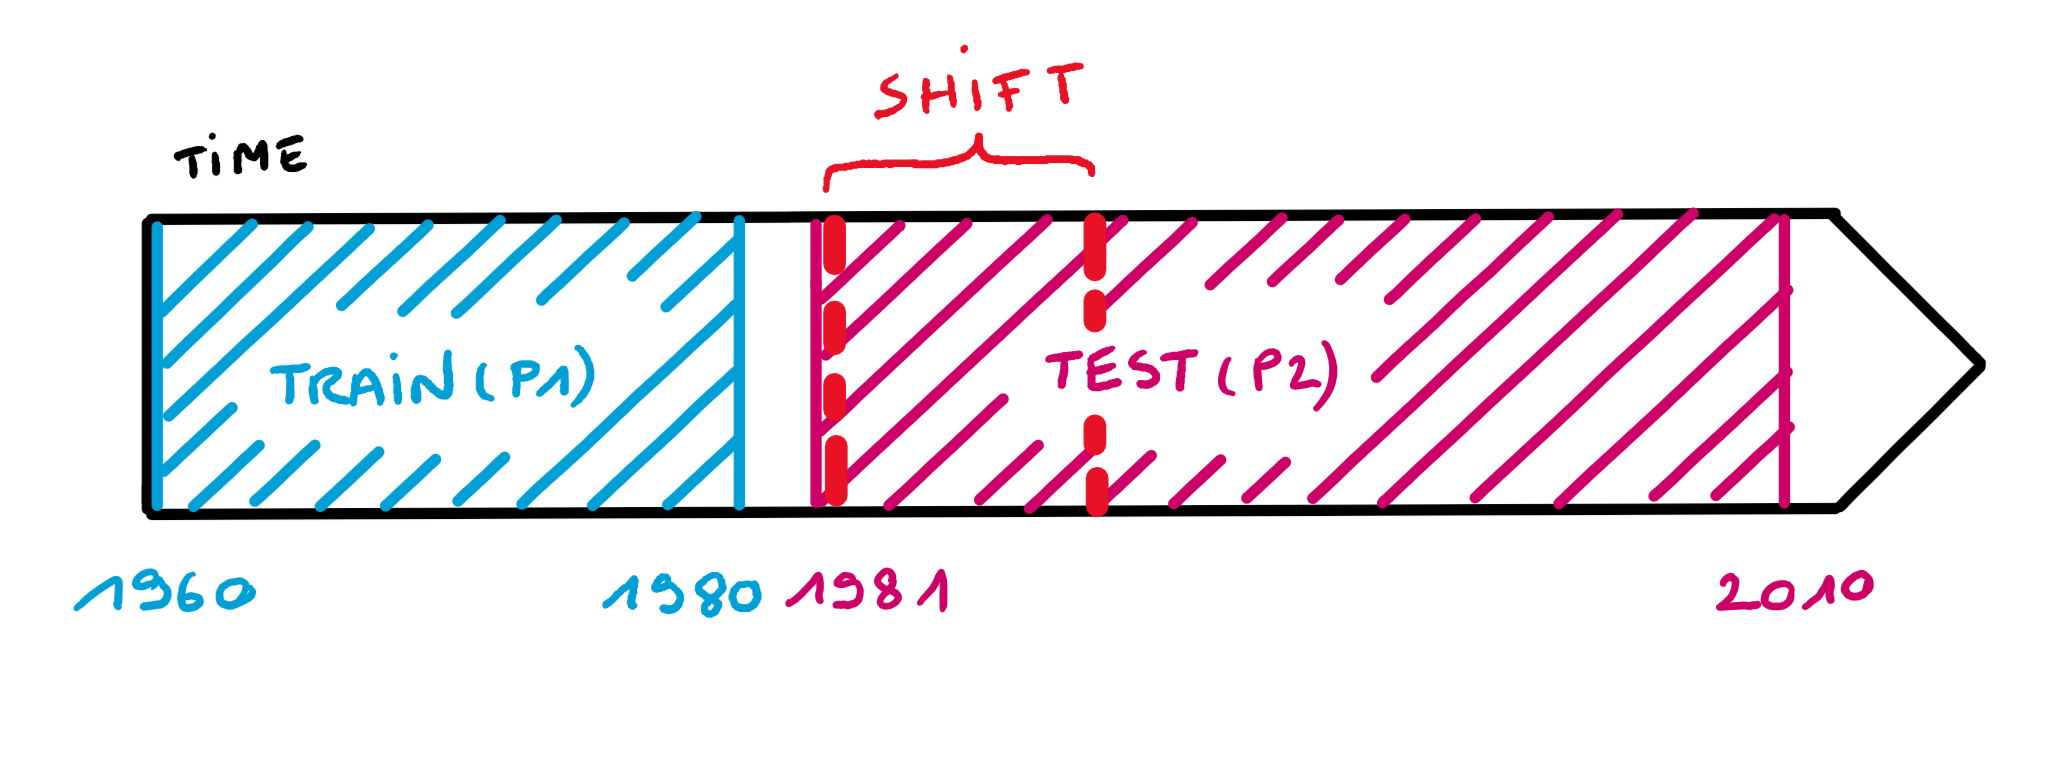 SHiFT
TiME
TRAiN (P1)
TEST (P2)
1960
1980
1981
2010